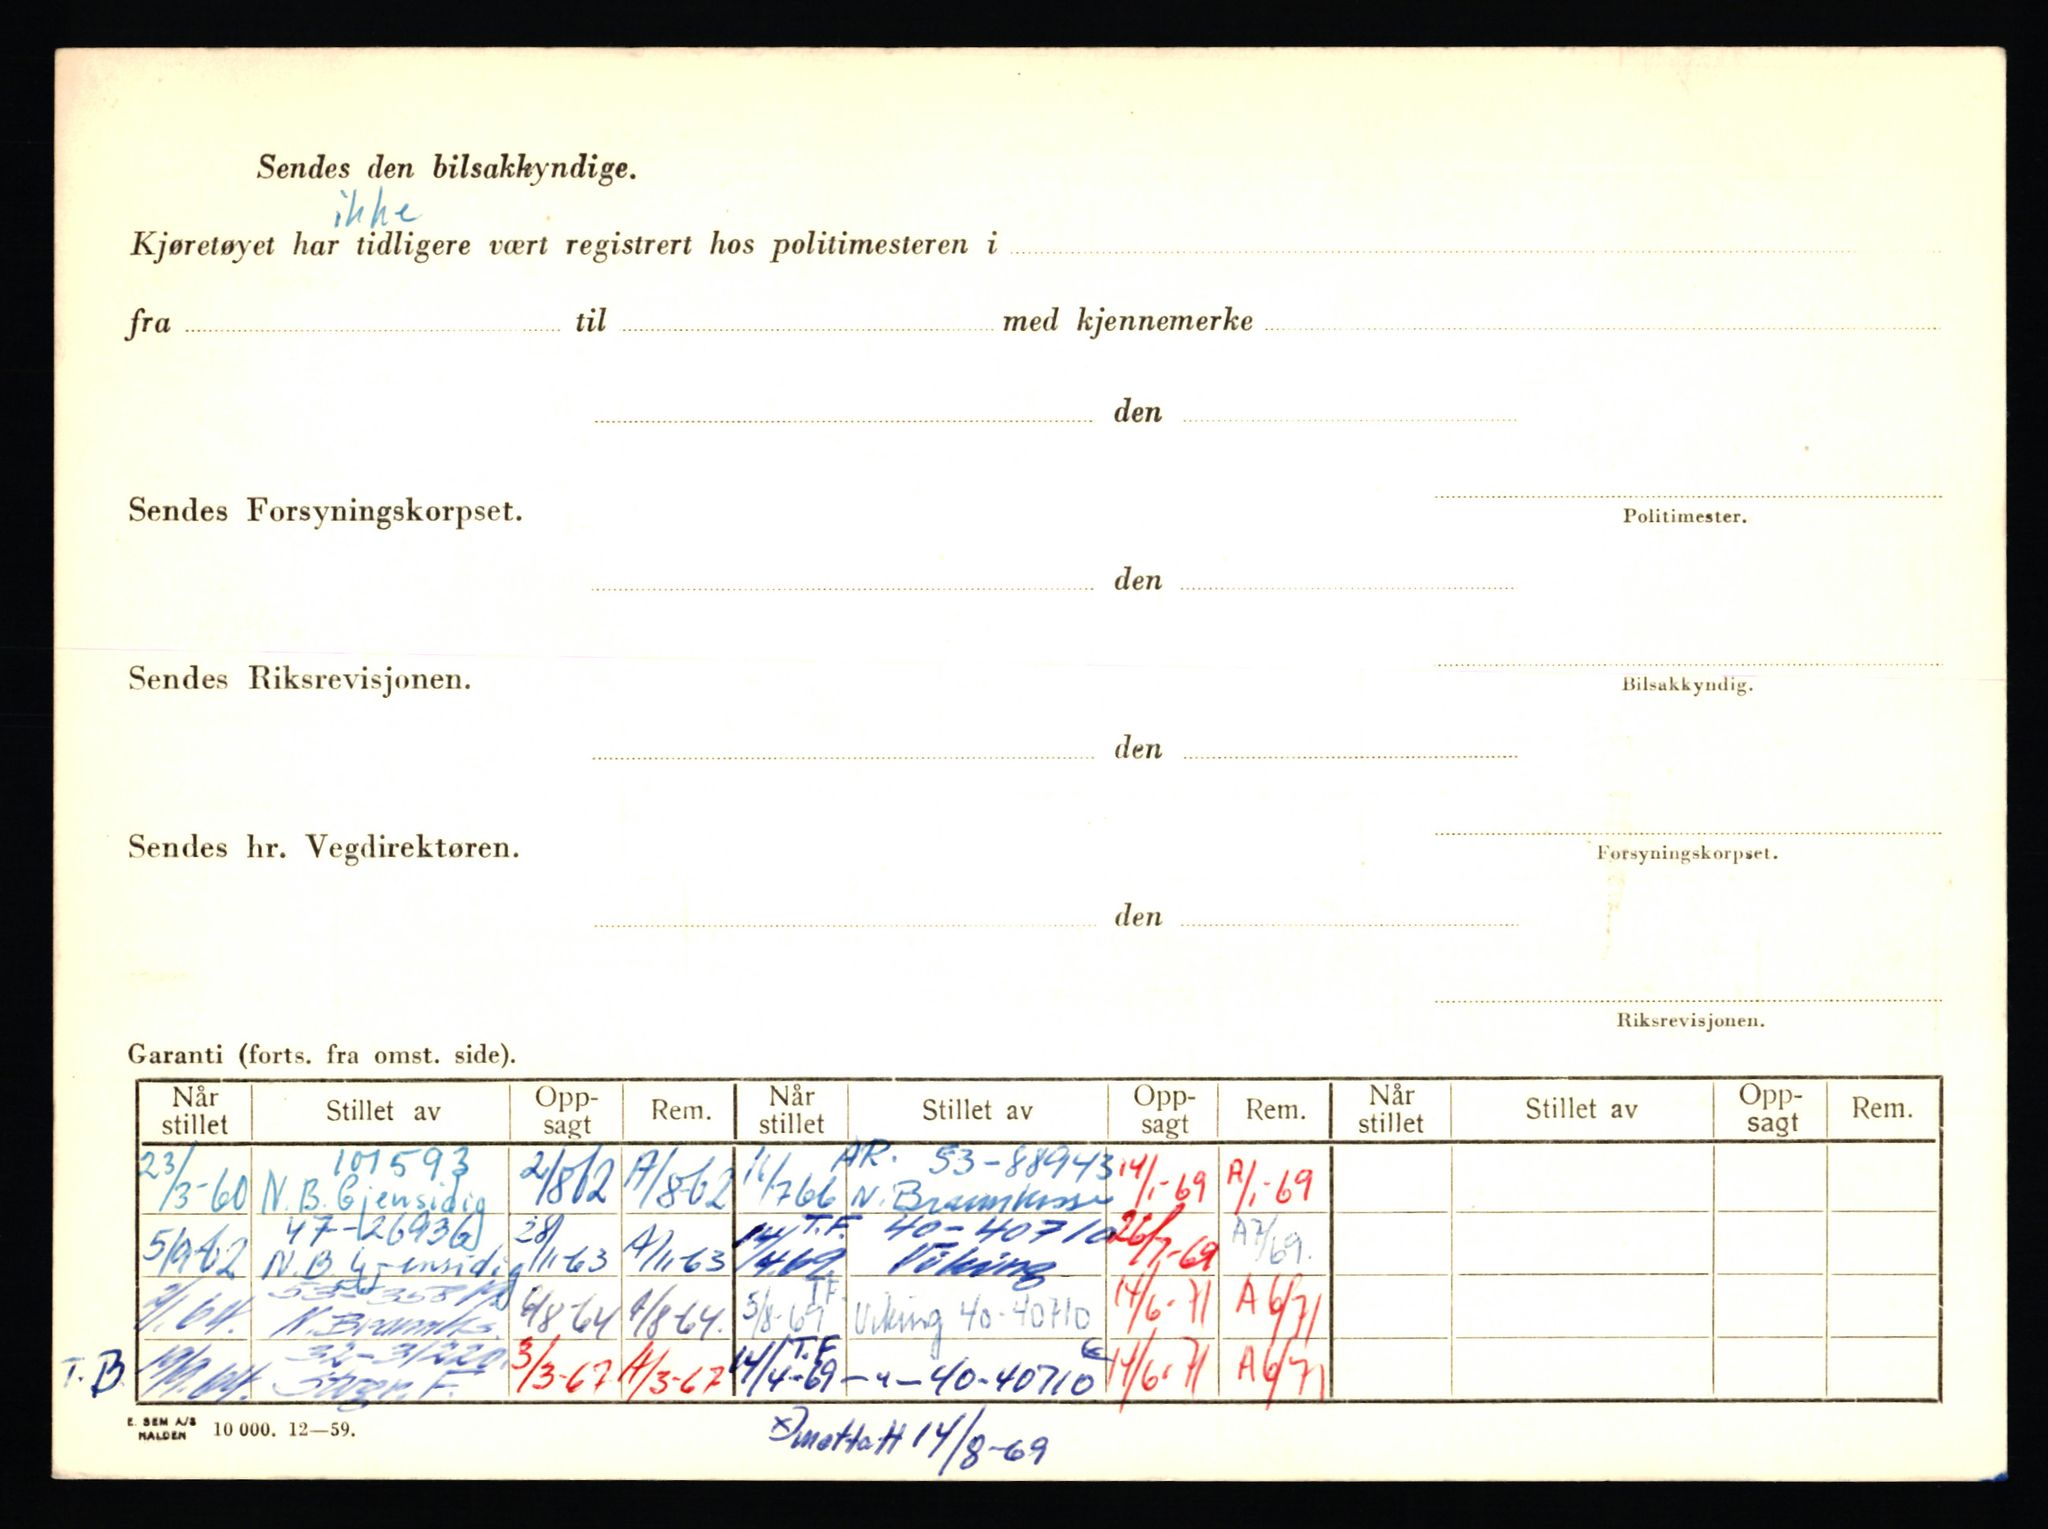 Sendes den bilsakkyndige.
ikke
Kjøretøyet har tidligere vært registrert hos politimesteren i
fra til med kjennemerke
den
Sendes Forsyningskorpset.
Politimester.
den
Sendes Riksrevisjonen.
Bilsakkyndig.
den
Sendes hr. Vegdirektøren.
Forsyningskorpset.
den
Riksrevisjonen.
Garanti (forts. fra omst. side).
Når stillet Stillet av Opp-sagt Rem. Når stillet Stillet av Opp-sagt Rem. Når stillet Stillet av Opp-sagt Rem.
23/3-60 101593 N.B. Gjensidig 2/8 62 A/8-62 11/7 66 AR. 53-88943 N. Brannkasse 14/1-69 A/1-69
5/9-62 47-26936 N.B. Gjensidig 28/11-63 A/11-63 14/4.69 T.F. 40-40710 Viking 26/7-69 A7/69.
2/1.64. N. Brannks. 6/8-64 A/8-64. 5/8-69 T.F. Viking 40-40710 14/6-71 A6/71
T.B. 19/9.64. Storeb. F. 3/3-67 A/3-67 14/4-69 T.F. — " — 40-40710 14/6-71 A6/71
E. SEM A/S HALDEN 10 000. 12—59.
x) mottatt 14/8-69